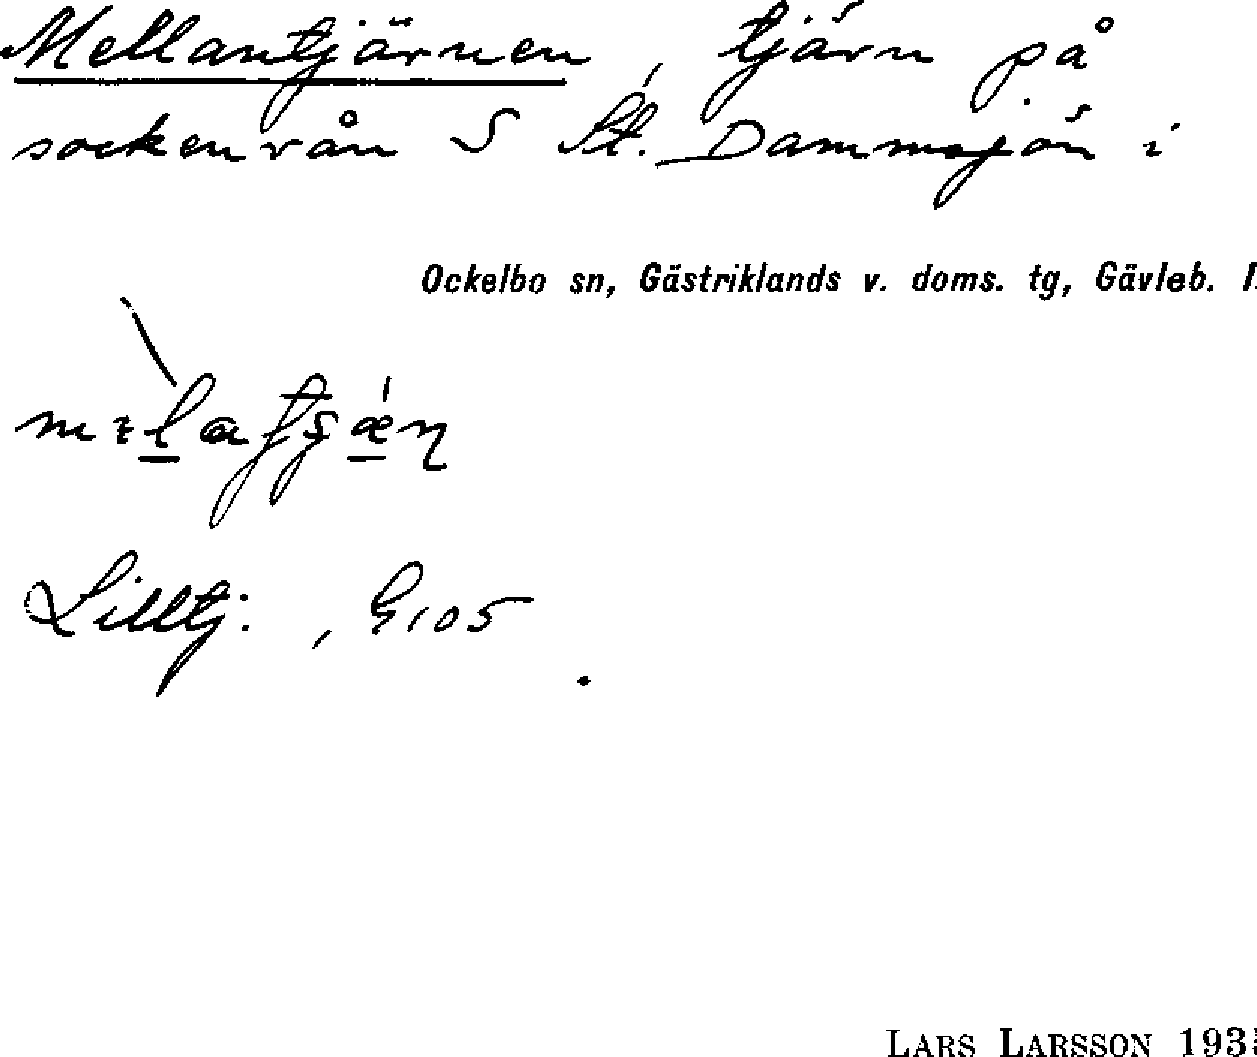 Mellantjärnen, tjärn på
sockenrån S St. Dammsjön i
Ockelbo sn, Gästriklands v. doms. tg, Gävleb. l.
Lilltj: , G105
LARS LARSSON 193